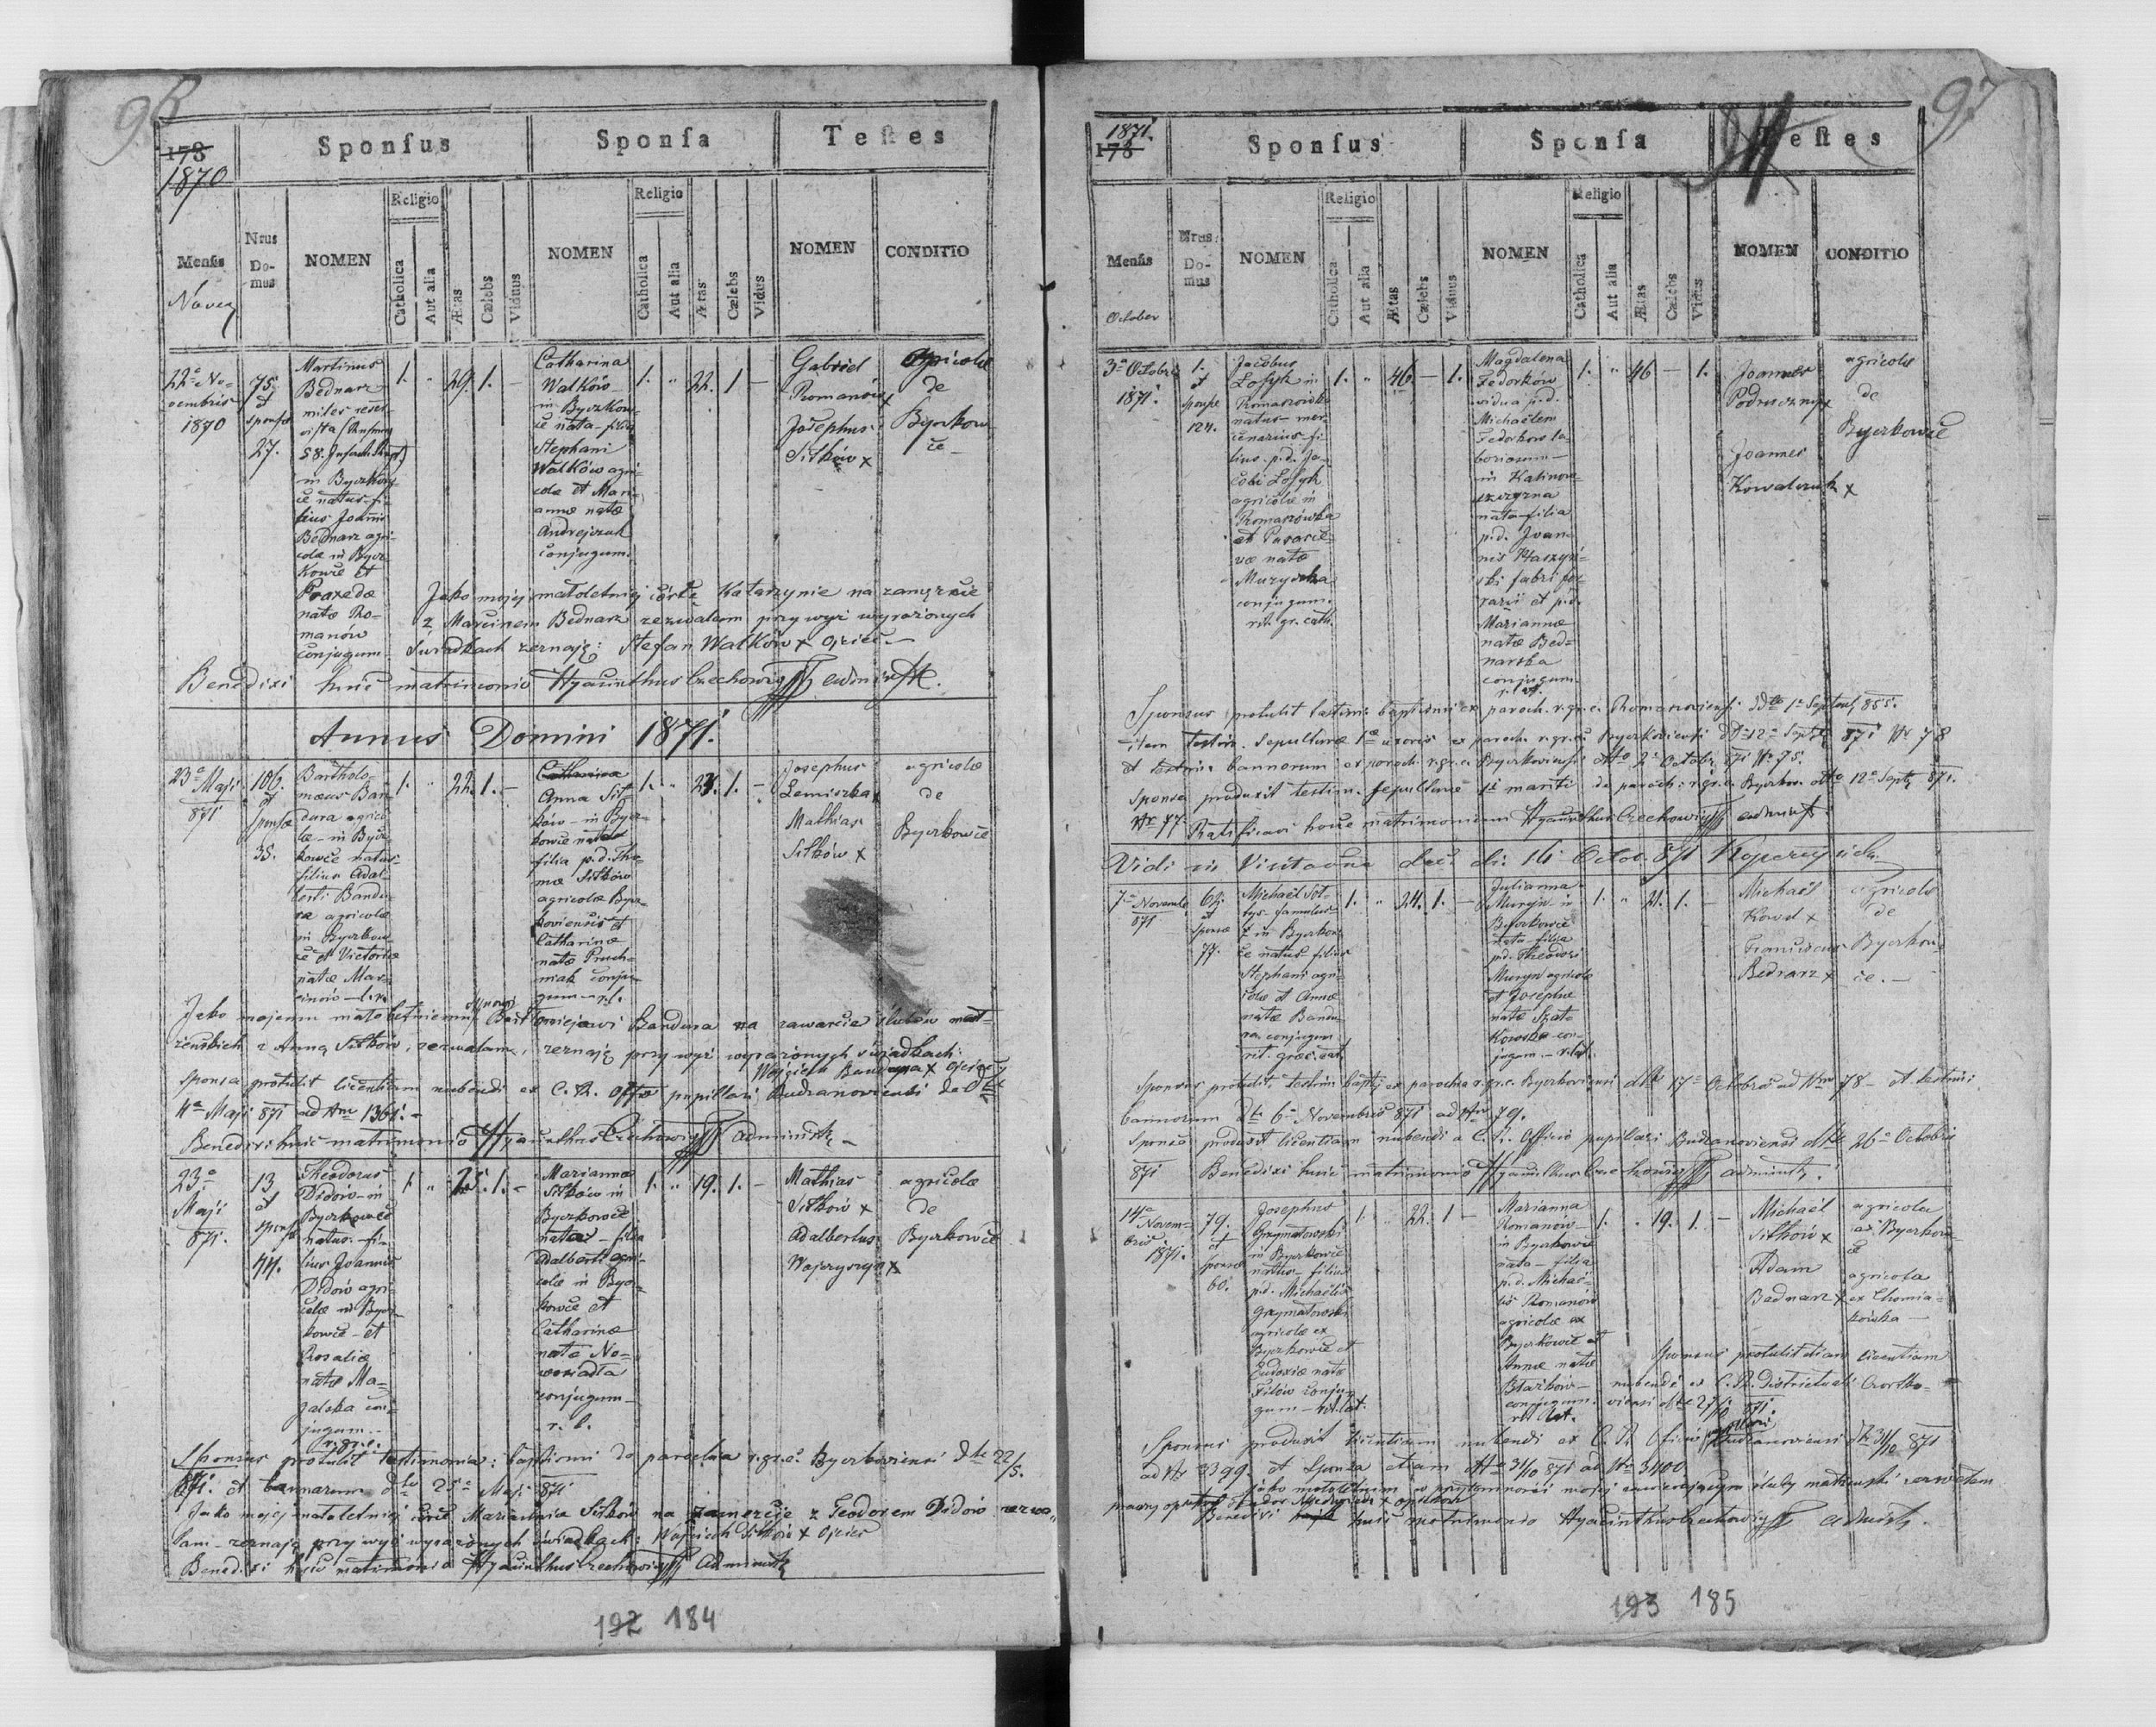 96
178
1870
Sponsus
Sponsa
Testes
Mensis
Nrus
Do-
mus
NOMEN
Religio
Catholica
Aut alia
Ætas
Cælebs
Viduus
NOMEN
Religio
Catholica
Aut alia
Ætas
Cælebs
Vidus
NOMEN
CONDITIO
22a No-
vembris
1870
75.
et
sponsæ
27.
Martinus
Bednarz
miles reser-
vista
in Byczkow-
ce natus fi-
lius Joannis
Bednarz agri-
colæ in Bycz-
kowce et
Praxedæ
natæ Ro-
manow
conjugum
1. " 29. 1. -
Catharina
Walków
in Byczkow-
ce nata - filia
Stephani
Walków agri-
colæ et Mari-
annæ natæ
Andrejczuk
conjugum.
1. " 22. 1 -
Gabriel
Romanów x
Josephus
Sitków x
agricolæ
de
Byczkow-
ce -
Jako mojej małoletniej córce Katarzynie na zamęźcie
z Marcinem Bednarz zezwalam przy wyż wyrażonych
świadkach zeznaję: Stefan Walków x ojciec. -
Benedixi huic matrimonio Hyacinthus Czechowicz
Annus Domini 1871.
23a Maji
871
106.
et
sponsæ
35.
Bartholo-
mæus Ban-
dura agrico-
la - in Bycz-
kowce natus
filius Adal-
berti Bandu-
ra agricolæ
in Byczkow-
ce et Victoriæ
natæ Mar-
cinow
1. " 22. 1. -
Anna Sit-
ków - in Bycz-
kowce nata
filia p.d. Tho-
mæ Sitków
agricolæ Bycz-
koviensis et
Catharinæ
natæ Pruch-
niak conju-
gum - r.l.
1. " 1. -
Josephus
Lemiszka x
Mathias
Sitków x
agricolæ
de
Byczkowce
Jako mojemu małoletniemu synowi Bartłomiejowi Bandura na zawarcia ślubów mał-
żeńskich z Anną Sitków, zezwalam, zeznaję przy wyż wyrażonych świadkach:
Wojciech Bandura x Ojciec
Sponsa protulit licentiam nubendi ex C. R. offo pupillari Budzanoviensi
4a Maji 871 ad Nrm 1361. -
Benedixi huic matrimonio Hyacinthus Czechowicz administr. -
23a
Maji
871.
13
et
sponsæ
44.
Theodorus
Didów - in
Byczkowce
natus - fi-
lius Joannis
Didów agri-
colæ in Bycz-
kowce - et
Rosaliæ
natæ Ma-
jalska con-
jugum. -
r. gr. c.
1. " 25. 1. -
Marianna
Sitków in
Byczkowce
nata - filia
Adalberti agri-
colæ in Bycz-
kowce et
Catharinæ
natæ No-
wosiadła
conjugum -
r. l.
1. " 19. 1. -
Mathias
Sitków x
Adalbertus
x
agricolæ
de
Byczkowce
Sponsus protulit testimonia: baptismi de parochia r.gr.c. Byczkoviensi dto 22/5.
871. et bannorum dto Maji 871
Jako mojej małoletniej córce Mariannie Sitków na zamęźcie z Teodorem Didów zezwa-
lam - zeznaję przy wyż wyrażonych świadkach: Wojciech Sitków x Ojciec
Benedixi huic matrimonio Hyacinthus Czechowicz Administr.
192 184
97
1871.
178
Sponsus
Sponsa
Testes
Mensis
October
Nrus
Do-
mus
NOMEN
Religio
Catholica
Aut alia
Ætas
Cælebs
Viduus
NOMEN
Religio
Catholica
Aut alia
Ætas
Cælebs
Vidus
NOMEN
CONDITIO
3a Octobris
1871.
1.
et
sponsæ
124.
Jacobus
Łosyk in
Romaszówka
natus - mer-
cenarius - fi-
lius p.d. Ja-
cobi Łosyk
agricolæ in
Romaszówka
et Parasce-
væ natæ
conjugum.
rit. gr. cath.
1. " 46 - 1.
Magdalena
Fedorków
vidua p.d.
Michaelem
Fedorkow la-
boriosum -
in Kalinow-
szczyzna
nata - filia
p.d. Joan-
nis
fabri fer-
rarii et p.d.
Mariannæ
natæ Bed-
narska
conjugum
1. " 46 - 1.
Joannes
x
Joannes
Kowalczuk x
agricolæ
de
Byczkowce
Sponsus protulit testim. baptismi ex paroch. r.gr.c. Romaszoviensi ddto 1a Septemb. 855.
item testim. sepulturæ 1æ uxoris ex paroch. r.gr.c. Byczkoviensi dto 12a Septb. 871 Nr 78
et testim. bannorum ex paroch. r.gr.c. Byczkoviensi dtto 2a Octobr. 871 Nr 75.
Sponsa produxit testim. sepulturæ 1i mariti de paroch. r.gr.c. Byczkow. dtto 12a Septb. 871.
Nr 77. Ratificavi hocce matrimonium Hyacinthus Czechowicz administr.
Vidi in Visitatione dec. di. 16 Octob. 871
7a Novemb.
871
et
sponsæ
77.
Michaël Soł-
tys - famulus
in Byczkow-
ce natus filius
Stephani agri-
colæ et Annæ
natæ Bandu-
ra conjugum
rit. græc. cat.
1. " 24. 1. -
Julianna
Muryn - in
Byczkowce
nata - filia
p.d. Theodosi
Muryn agricolæ
et Josephæ
natæ Szats-
kowska con-
jugum. - r. lat.
1. " 21. 1. -
Michaël
Kowal x
Franciscus
Bednarz x
agricolæ
de
Byczkow-
ce. -
Sponsus protulit testim. bapt. ex parochia r.gr.c. Byczkoviensi dtto 17a Octobris ad Nrm 78 - et testim.
bannorum dto 6a Novembris 871 ad Nrm 79.
Sponsa produxit licentiam nubendi a C. R. Officio pupillari Budzanoviensi dtto 26a Octobris
871 Benedixi huic matrimonio Hyacinthus Czechowicz administr.
14a
Novem-
bris
1871.
79.
et
sponsæ
60.
Josephus
Grzymałowski
in Byczkowce
natus - filius
p.d. Michaëlis
Grzymałowski
agricolæ ex
Byczkowce et
Eudoxiæ natæ
Filów conju-
gum - rit. lat.
1. " 22. 1 -
Marianna
Romanów -
in Byczkowce
nata - filia
p.d. Michaë-
lis Romanów
agricolæ ex
Byczkowce et
Annæ natæ
conjugum.
rit. lat.
1. " 19. 1. -
Michaël
Sitków x
Adam
Bednarz x
agricola
ex Byczkow-
ce
agricola
ex Chomia-
kówka -
Sponsus protulit etiam licentiam
nubendi ex C. R. Districtuali Czortko-
viensi dtto 27/10 871.
Sponsus produxit licentiam nubendi ex C. R. Officio pupillari Budzanoviensi dto 31/10 871
ad Nr 3399. et Sponsa etiam dtto 31/10 871 ad Nrm 3400
Benedixi huic matrimonio Hyacinthus Czechowicz administr.
193 185